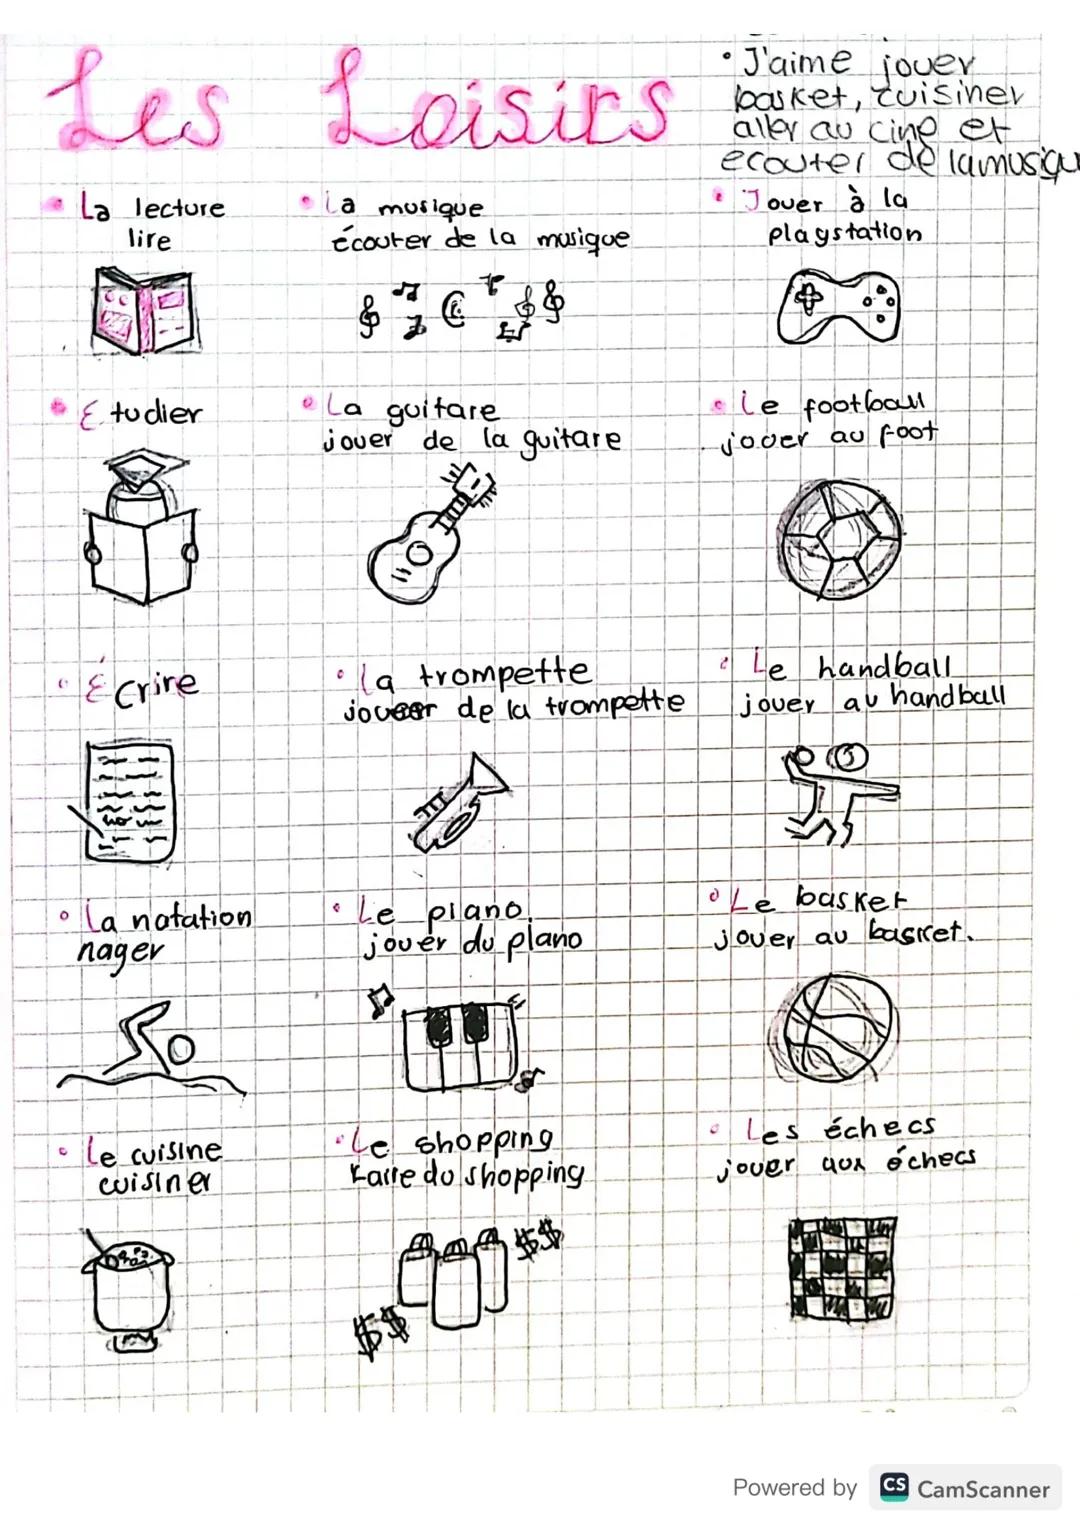 Les Loisirs
• J'aime jouer
basket, cuisiner
aller au cine et
ecouter de la musiqu
• La lecture
lire
• La musique
écouter de la musique
• Jouer à la
playstation
• Etudier
• La guitare
jouer de la guitare
• Le football
jouer au foot
• Écrire
• la trompette
joueer de la trompette
• Le handball
jouer au handball
• La natation
nager
• Le piano.
jouer du piano
• Le basket
jouer au basket.
• Le cuisine
cuisiner
• Le shopping
Faire du shopping
• Les échecs
jouer aux échecs
$$
$$
Powered by CS CamScanner